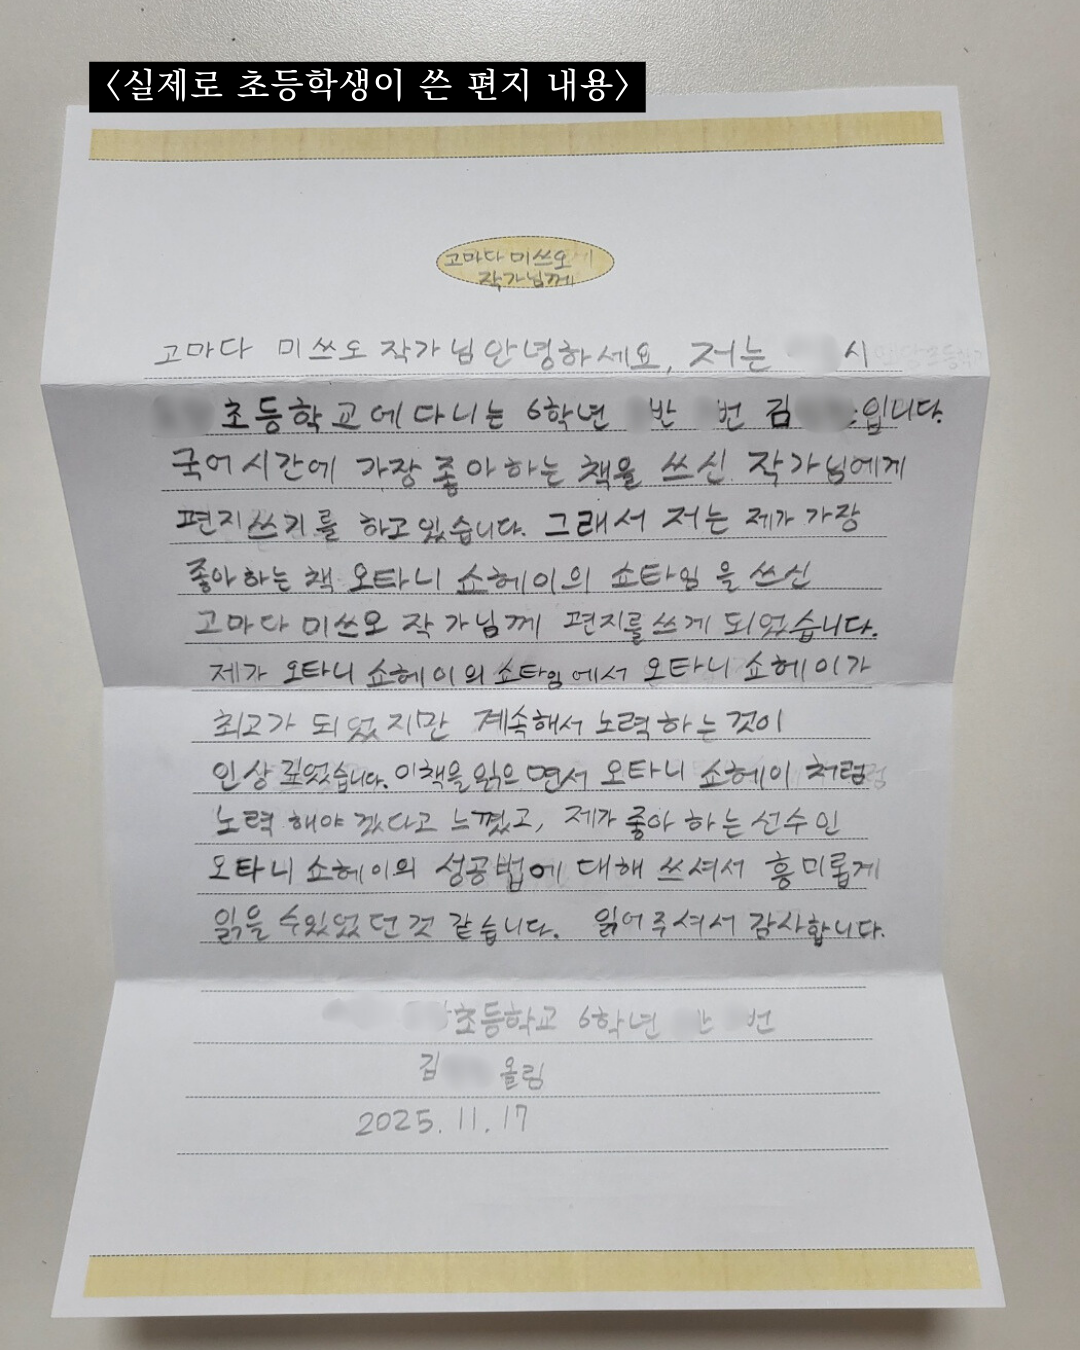 <실제로 초등학생이 쓴 편지 내용>
고마다 미쓰오
작가님께
고마다 미쓰오 작가님 안녕하세요, 저는 시
초등학교에 다니는 6학년 반 번 김 입니다.
국어 시간에 가장 좋아하는 책을 쓰신 작가님에게
편지쓰기를 하고 있습니다. 그래서 저는 제가 가장
좋아하는 책 오타니 쇼헤이의 쇼타임 을 쓰신
고마다 미쓰오 작가님께 편지를 쓰게 되었습니다.
제가 오타니 쇼헤이의 쇼타임에서 오타니 쇼헤이가
최고가 되었지만 계속해서 노력하는 것이
인상 깊었습니다. 이책을 읽으면서 오타니 쇼헤이 처럼
노력 해야 겠다고 느꼈고, 제가 좋아 하는 선수인
오타니 쇼헤이의 성공법에 대해 쓰셔서 흥미롭게
읽을 수있었던것 같습니다. 읽어주셔서 감사합니다.
초등학교 6학년 번
김 올림
2025.11.17